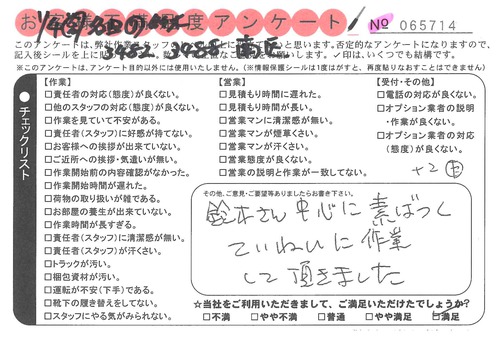 お 度アンケート
№ 065714
3482, 3488
このアンケートは、弊社作業スタッフ
と思います。否定的なアンケートになりますので、
記入後シールを上に
お願いします。✓印は、いくつでも結構です。
※このアンケートは、アンケート目的以外には使用いたしません。(※情報保護シールは1度はがすと、再度貼りなおすことはできません)
チェックリスト
【作業】
□責任者の対応(態度)が良くない。
□他のスタッフの対応(態度)が良くない。
□作業を見ていて不安がある。
□責任者(スタッフ)に好感が持てない。
□お客様への挨拶が出来ていない。
□ご近所への挨拶・気遣いが無い。
□作業開始前の内容確認がなかった。
□作業開始時間が遅れた。
□荷物の取り扱いが雑である。
□お部屋の養生が出来ていない。
□作業時間が長すぎる。
□責任者(スタッフ)に清潔感が無い。
□責任者(スタッフ)が汗くさい。
□トラックが汚い。
□梱包資材が汚い。
□運転が不安(下手)である。
□靴下の履き替えをしてない。
□スタッフにやる気がみられない。
【営業】
□見積もり時間に遅れた。
□見積もり時間が長い。
□営業マンに清潔感が無い。
□営業マンが煙草くさい。
□営業マンが汗くさい。
□営業態度が良くない。
□営業の説明と作業が一致してない。
【受付・その他】
□電話の対応が良くない。
□オプション業者の説明
・作業が良くない。
□オプション業者の対応
(態度)が良くない。
+2
その他、ご意見・ご要望等ありましたらお書き下さい。
鈴木さん中心に素ばやく
ていねいに作業
して頂きました
☆当社をご利用いただきまして、ご満足いただけたでしょうか?
□不満 □やや不満 □普通 □やや満足 ☑満足